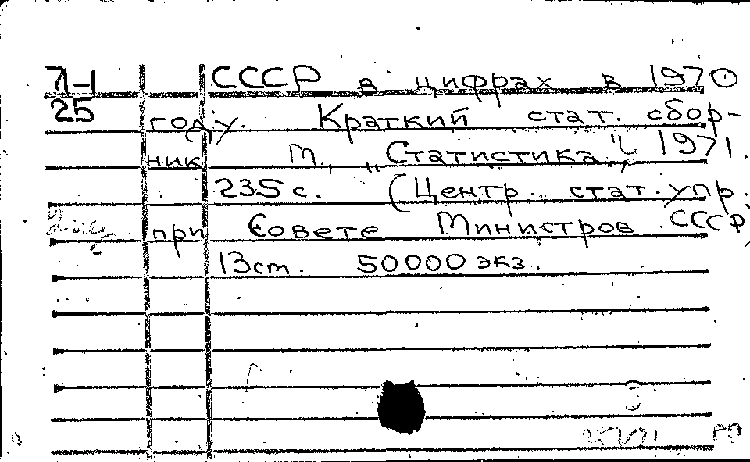 71-1 СССР в цифрах в 1970
25
году. Краткий стат. сбор-
ник М., „Статистика", 1971.
235 с. (Центр. стат. упр.
при Совете Министров СССР)
13 cm. 50000 экз.